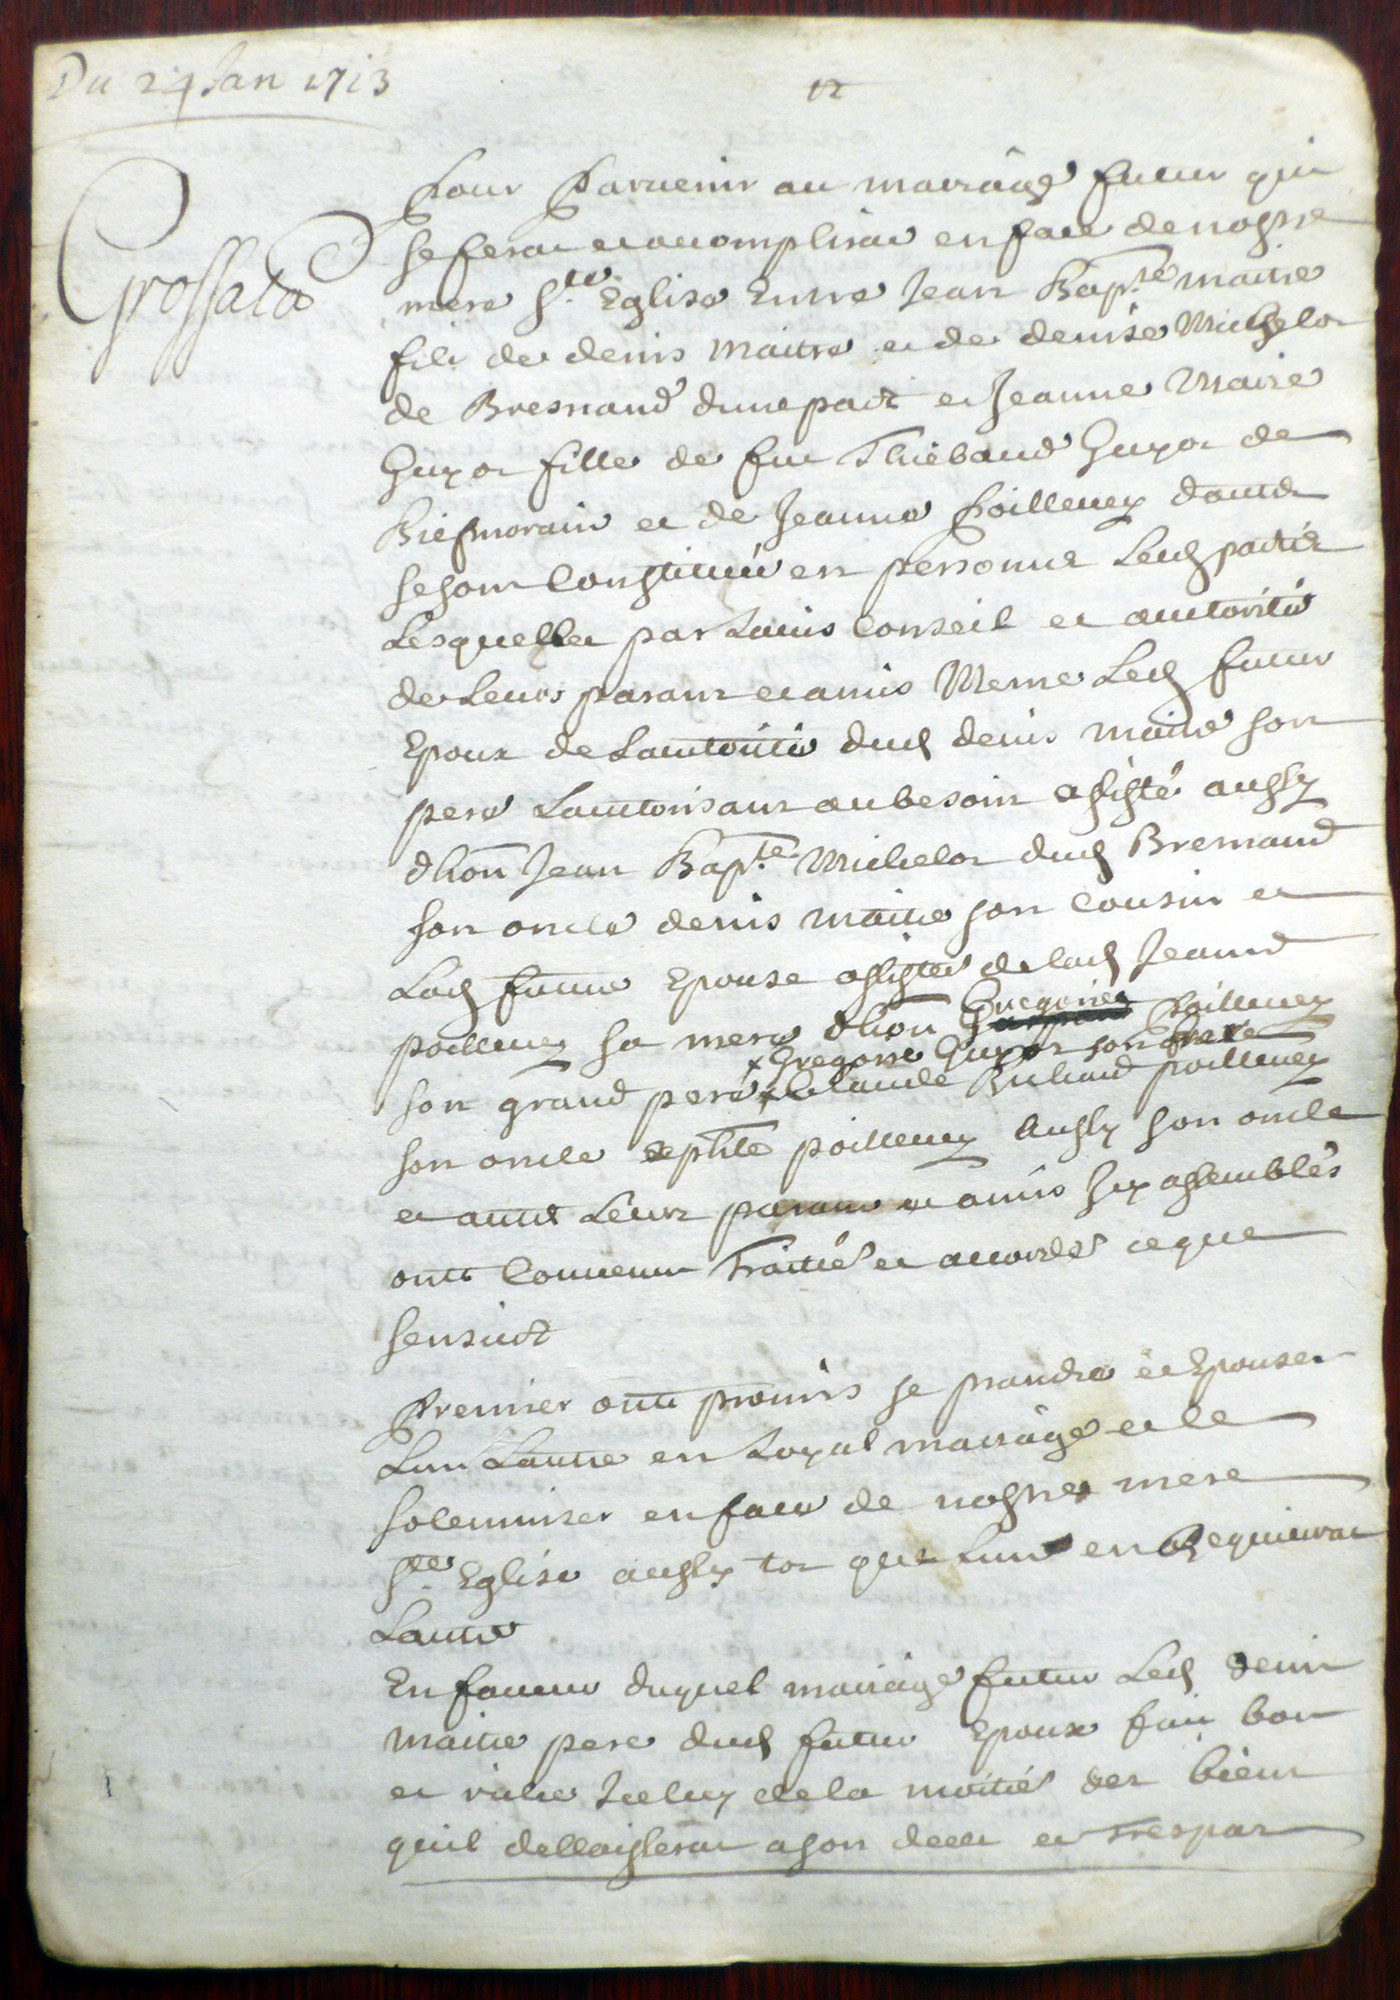 Du 24 Jan 1713
12
Grossata
Pour Parvenir au mariage futur qui
se ferat et accomplirat en face de nostre
mere Ste Eglise Entre Jean Bapte maitre
fils de denis maitre et de denise Michelot
de Bresnand dune part et Jeanne Marie
Guyot fille de fut Thiebaud Guyot de
Briefmorain et de Jeanne Poilleney dautre
se sont Constitué en personne Lesd parties
Lesquelles par Lavis Conseil et authorité
de Leurs parans et amis Meme Led futur
Epoux de Lauthorité dud denis maitre son
pere Lauthorisant au besoin assisté aussy
dhon Jean Bapte Michelot dud Bremand
son oncle denis maitre son Cousin et
Lad future Epouse assistée de lad Jeanne
poilleney sa mere dhon Gregoire Poilleney
x Gregoire Guyot son frere
son grand pere x Claude Richard poilleney
son oncle et phle poilleney aussy son oncle
et autre Leurs parans et amis Icy assemblés
onts Convenu Traitié et accordé ce que
sensuit
Premier onts promis se prandre et Epouser
Lun Lautre en Loyal mariage et le
solemniser en face de nostre mere
Ste Eglise aussy tot que Lun en Requierat
Lautre
En faveur duquel mariage futur Led denis
maitre pere dud futur Epoux fait bon
et vailie Iceluy de la moitié des biens
quil dellaisserat a son deces et trespas